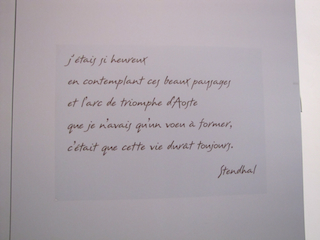 j'étais si heureux
en contemplant ces beaux paysages
et l'arc de triomphe d'Aoste
que je n'avais qu'un voeu à former,
c'était que cette vie durât toujours.
Stendhal